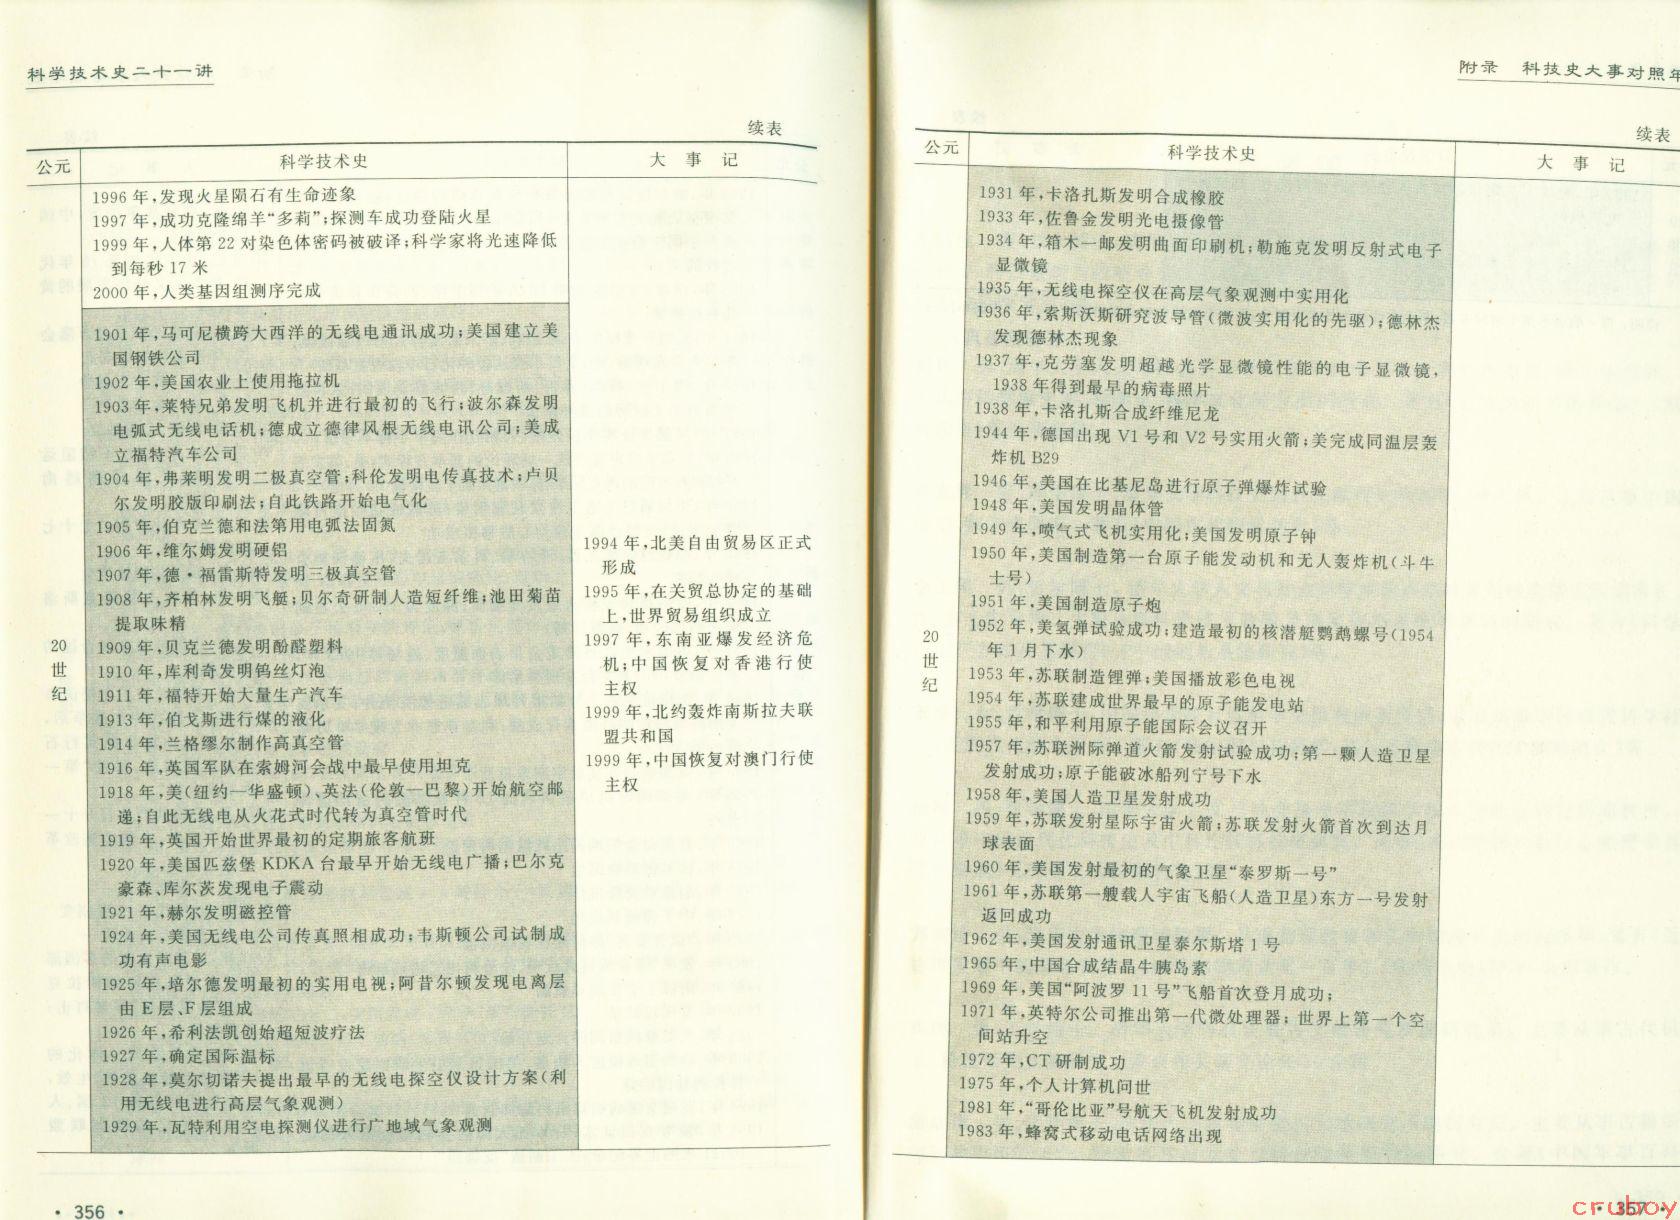 科学技术史二十一讲
续表
公元
科学技术史
大 事 记
1996 年,发现火星陨石有生命迹象
1997 年,成功克隆绵羊“多莉”;探测车成功登陆火星
1999 年,人体第 22 对染色体密码被破译;科学家将光速降低
到每秒 17 米
2000 年,人类基因组测序完成
1901 年,马可尼横跨大西洋的无线电通讯成功;美国建立美
国钢铁公司
1902 年,美国农业上使用拖拉机
1903 年,莱特兄弟发明飞机并进行最初的飞行;波尔森发明
电弧式无线电话机;德成立德律风根无线电讯公司;美成
立福特汽车公司
1904 年,弗莱明发明二极真空管;科伦发明电传真技术;卢贝
尔发明胶版印刷法;自此铁路开始电气化
1905 年,伯克兰德和法第用电弧法固氮
1906 年,维尔姆发明硬铝
1907 年,德·福雷斯特发明三极真空管
1908 年,齐柏林发明飞艇;贝尔奇研制人造短纤维;池田菊苗
提取味精
1909 年,贝克兰德发明酚醛塑料
1910 年,库利奇发明钨丝灯泡
1911 年,福特开始大量生产汽车
1913 年,伯戈斯进行煤的液化
1914 年,兰格缪尔制作高真空管
1916 年,英国军队在索姆河会战中最早使用坦克
1918 年,美(纽约—华盛顿)、英法(伦敦—巴黎)开始航空邮
递;自此无线电从火花式时代转为真空管时代
1919 年,英国开始世界最初的定期旅客航班
1920 年,美国匹兹堡 KDKA 台最早开始无线电广播;巴尔克
豪森、库尔茨发现电子震动
1921 年,赫尔发明磁控管
1924 年,美国无线电公司传真照相成功;韦斯顿公司试制成
功有声电影
1925 年,培尔德发明最初的实用电视;阿昔尔顿发现电离层
由 E 层、F 层组成
1926 年,希利法凯创始超短波疗法
1927 年,确定国际温标
1928 年,莫尔切诺夫提出最早的无线电探空仪设计方案(利
用无线电进行高层气象观测)
1929 年,瓦特利用空电探测仪进行广地域气象观测
20
世
纪
1994 年,北美自由贸易区正式
形成
1995 年,在关贸总协定的基础
上,世界贸易组织成立
1997 年,东南亚爆发经济危
机;中国恢复对香港行使
主权
1999 年,北约轰炸南斯拉夫联
盟共和国
1999 年,中国恢复对澳门行使
主权
· 356 ·
附录 科技史大事对照年
续表
公元
科学技术史
大 事 记
1931 年,卡洛扎斯发明合成橡胶
1933 年,佐鲁金发明光电摄像管
1934 年,箱木一邮发明曲面印刷机;勒施克发明反射式电子
显微镜
1935 年,无线电探空仪在高层气象观测中实用化
1936 年,索斯沃斯研究波导管(微波实用化的先驱);德林杰
发现德林杰现象
1937 年,克劳塞发明超越光学显微镜性能的电子显微镜,
1938 年得到最早的病毒照片
1938 年,卡洛扎斯合成纤维尼龙
1944 年,德国出现 V1 号和 V2 号实用火箭;美完成同温层轰
炸机 B29
1946 年,美国在比基尼岛进行原子弹爆炸试验
1948 年,美国发明晶体管
1949 年,喷气式飞机实用化;美国发明原子钟
1950 年,美国制造第一台原子能发动机和无人轰炸机(斗牛
士号)
1951 年,美国制造原子炮
1952 年,美氢弹试验成功;建造最初的核潜艇鹦鹉螺号(1954
年 1 月下水)
1953 年,苏联制造锂弹;美国播放彩色电视
1954 年,苏联建成世界最早的原子能发电站
1955 年,和平利用原子能国际会议召开
1957 年,苏联洲际弹道火箭发射试验成功;第一颗人造卫星
发射成功;原子能破冰船列宁号下水
1958 年,美国人造卫星发射成功
1959 年,苏联发射星际宇宙火箭;苏联发射火箭首次到达月
球表面
1960 年,美国发射最初的气象卫星“泰罗斯一号”
1961 年,苏联第一艘载人宇宙飞船(人造卫星)东方一号发射
返回成功
1962 年,美国发射通讯卫星泰尔斯塔 1 号
1965 年,中国合成结晶牛胰岛素
1969 年,美国“阿波罗 11 号”飞船首次登月成功;
1971 年,英特尔公司推出第一代微处理器;世界上第一个空
间站升空
1972 年,CT 研制成功
1975 年,个人计算机问世
1981 年,“哥伦比亚”号航天飞机发射成功
1983 年,蜂窝式移动电话网络出现
20
世
纪
· 357 ·
cruboy